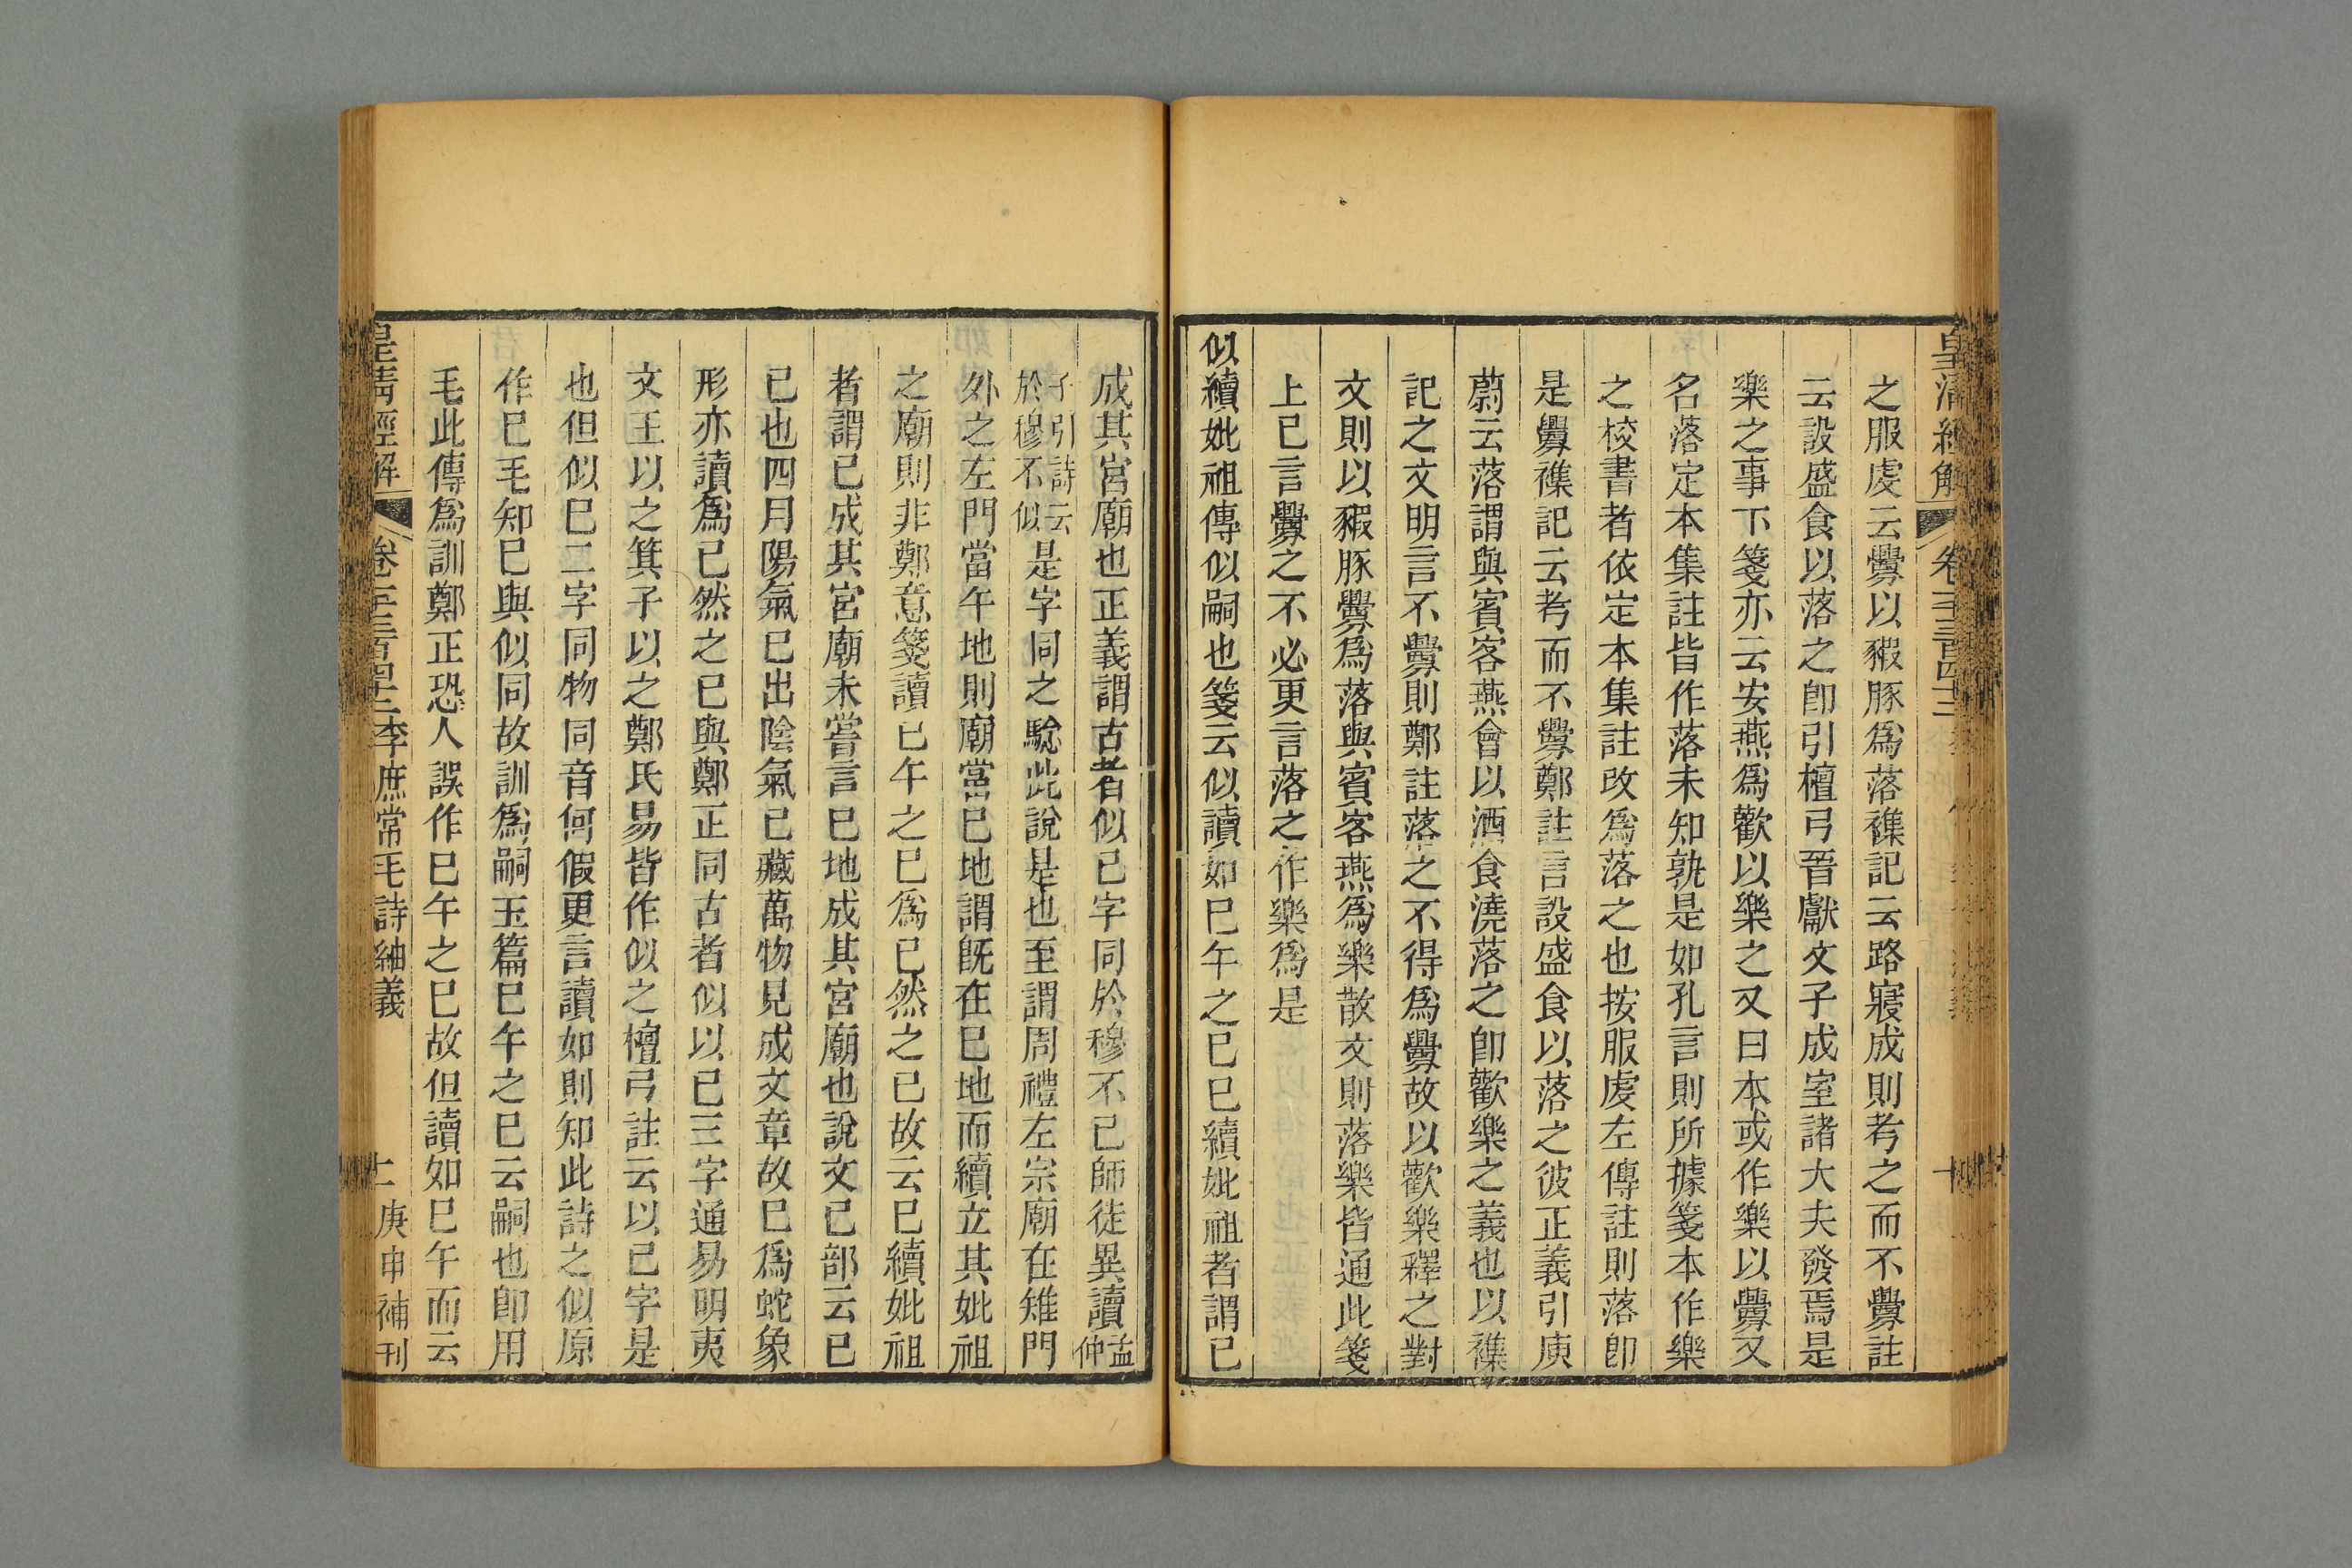 皇清經解 卷一千三百四十三
之服虔云釁以豭豚為落襍記云路寢成則考之而不釁註
云設盛食以落之卽引檀弓晉獻文子成室諸大夫發焉是
樂之事下箋亦云安燕為歡以樂之又曰本或作樂以釁又
名落定本集註皆作落未知孰是如孔言則所據箋本作樂
之校書者依定本集註改為落之也按服虔左傳註則落卽
是釁襍記云考而不釁鄭註言設盛食以落之彼正義引庾
蔚云落謂與賓客燕會以酒食澆落之卽歡樂之義也以襍
記之文明言不釁則鄭註落之不得為釁故以歡樂釋之對
文則以豭豚釁為落與賓客燕為樂散文則落樂皆通此箋
上已言釁之不必更言落之作樂為是
似續妣祖傳似嗣也箋云似讀如巳午之巳巳續妣祖者謂已
成其宮廟也正義謂古者似已字同於穆不已師徒異讀孟仲
子引詩云於穆不似是字同之驗此說是也至謂周禮左宗廟在雉門
外之左門當午地則廟當巳地謂旣在巳地而續立其妣祖
之廟則非鄭意箋讀巳午之巳為已然之已故云巳續妣祖
者謂已成其宮廟未嘗言巳地成其宮廟也說文巳部云巳
已也四月陽氣巳出陰氣已藏萬物見成文章故巳為蛇象
形亦讀為已然之已與鄭正同古者似以已三字通易明夷
文王以之箕子以之鄭氏易皆作似之檀弓註云以已字是
也但似巳二字同物同音何假更言讀如則知此詩之似原
作巳毛知巳與似同故訓為嗣玉篇巳午之巳云嗣也卽用
毛此傳為訓鄭正恐人誤作巳午之巳故但讀如巳午而云
皇清經解 卷一千三百四十三 李庶常毛詩紬義 十一 庚申補刊